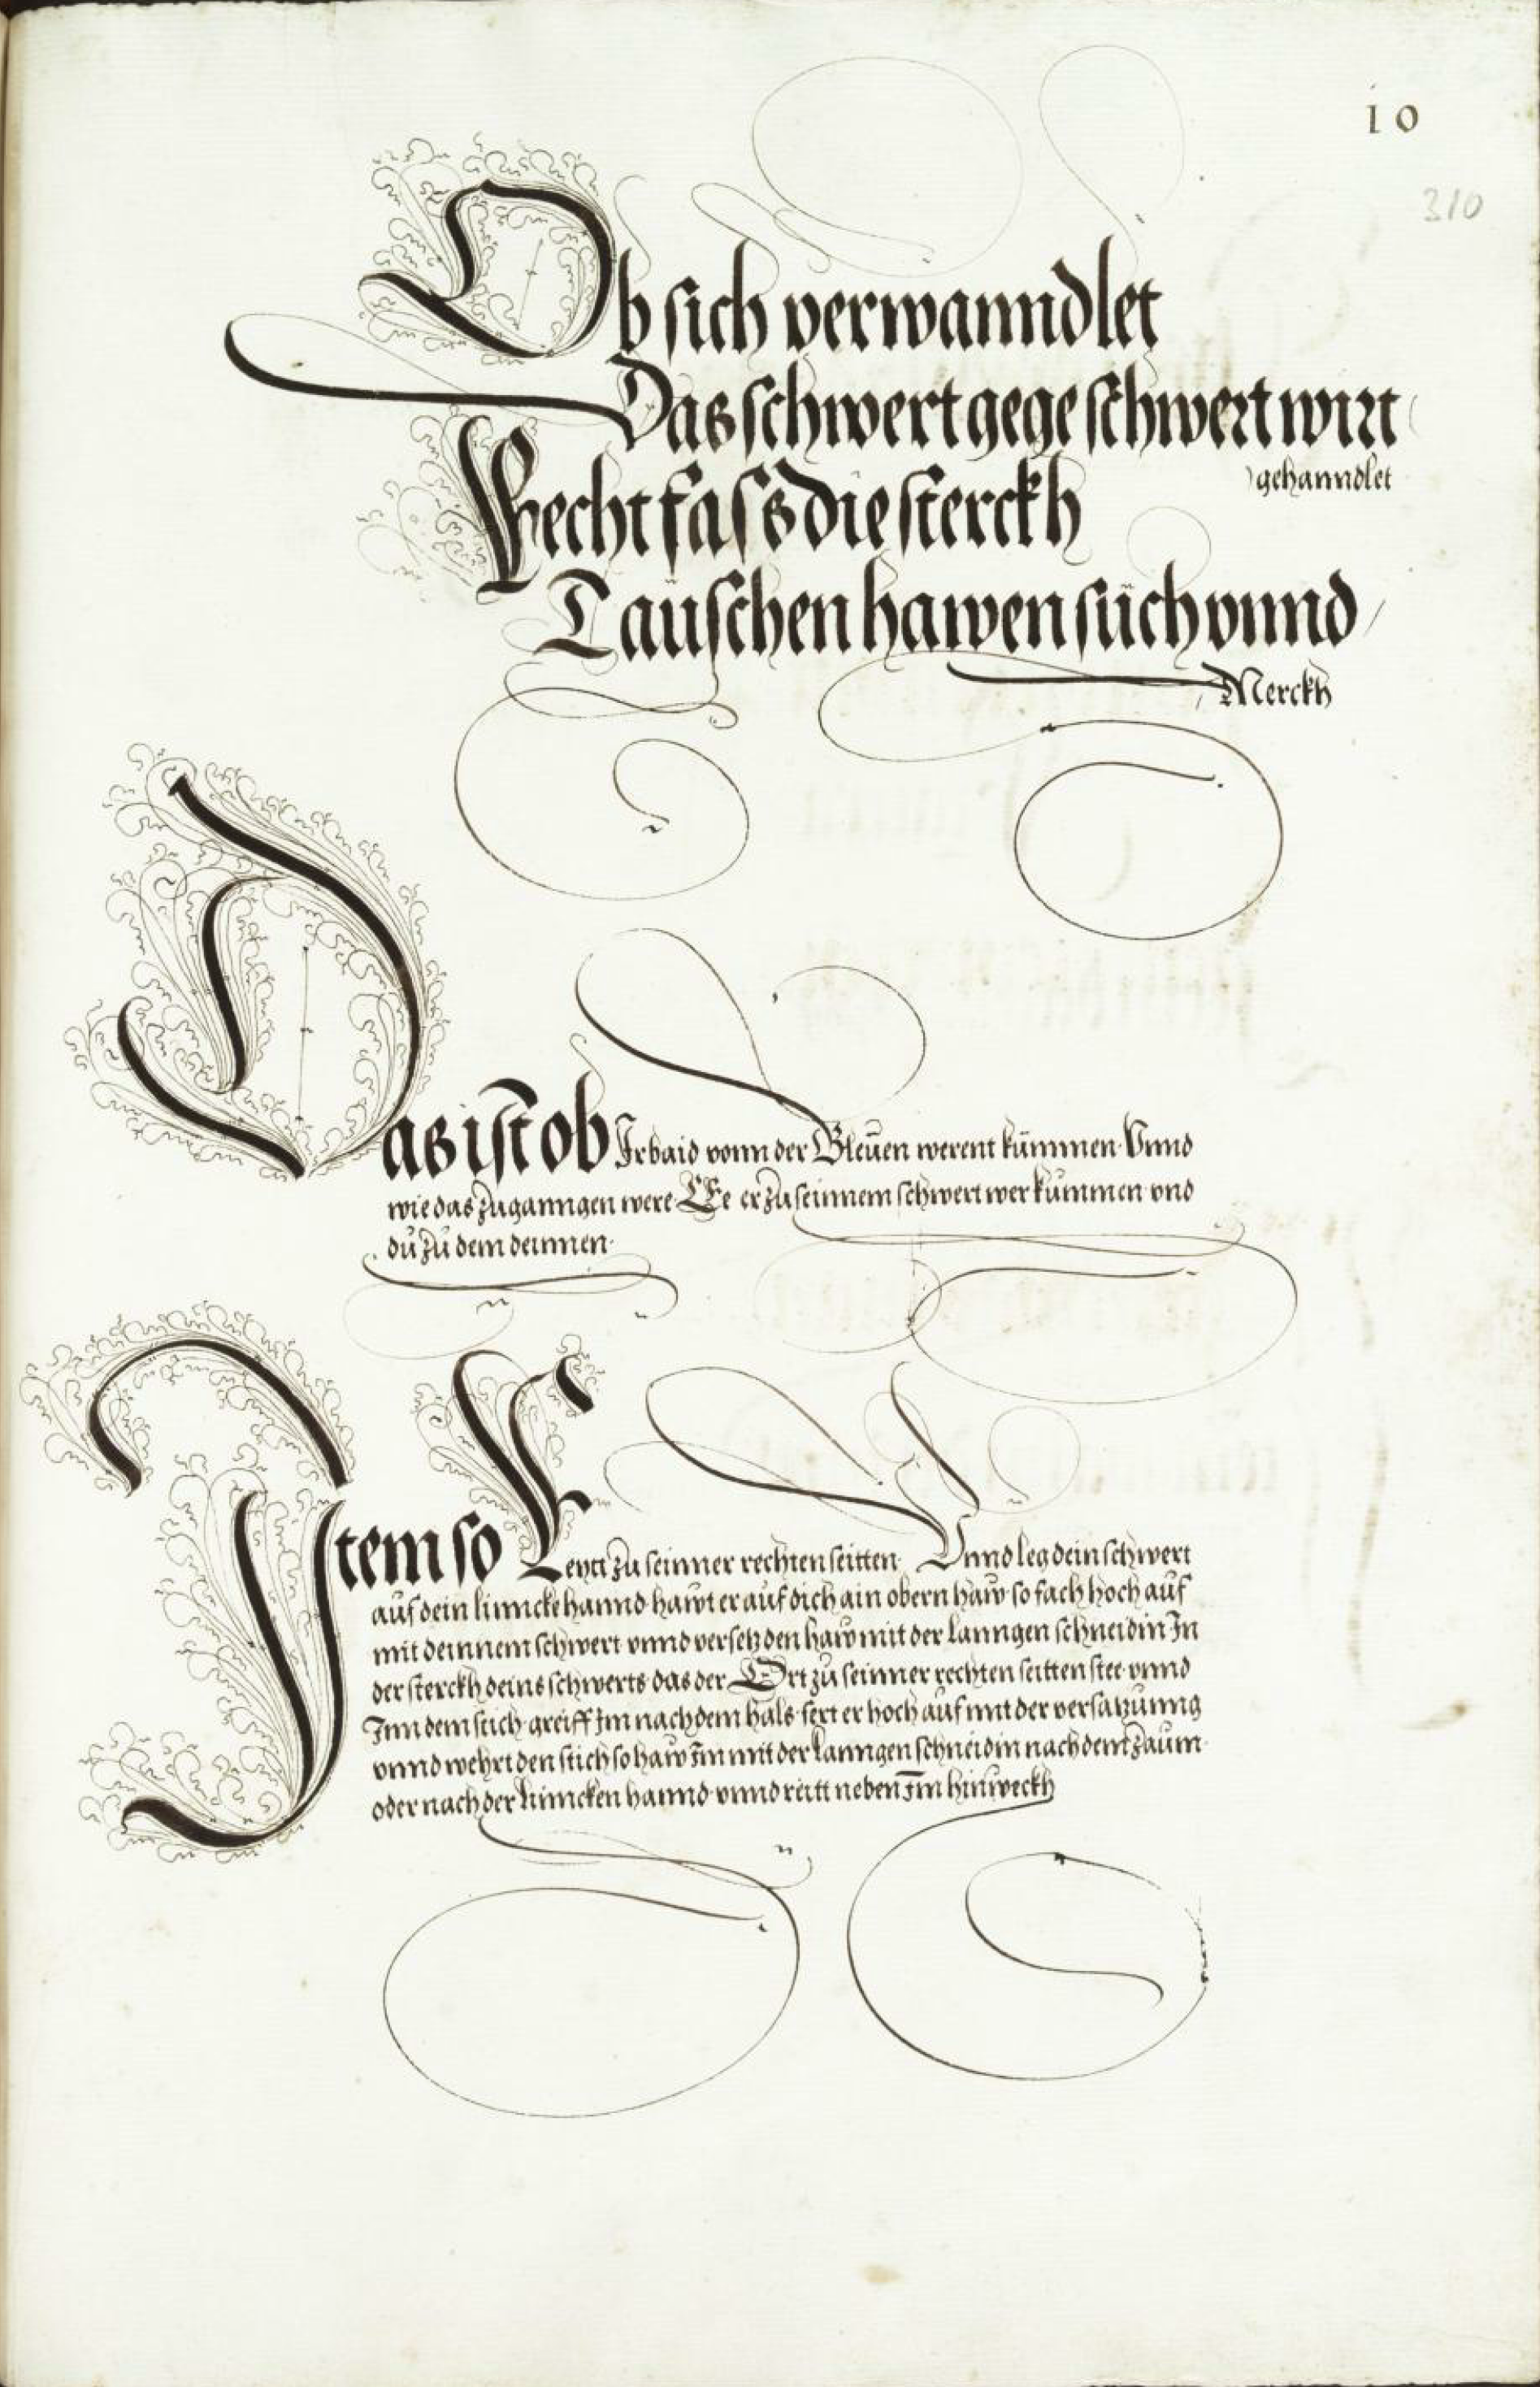 10
310
Ob sich verwanndlet
Das schwert gege schwert wirt
gehanndlet
Recht fass die sterckh
Täuschen hawen süch vnnd
Merckh
Das ist ob Ir baid vonn der Gleuen werent kummen Vnnd
wie das zuganngen were Ee er zu seinnem schwert wer kummen vnd
du zu dem deinnen
Item so Reytt zu seinner rechten seitten Vnnd leg dein schwert
auf dein linncke hannd hawt er auf dich ain obern haw so fach hoch auf
mit deinnem schwert vnnd versetz den haw mit der lanngen schneidin In
der sterckh deins schwerts das der Ort zu seinner rechten seitten stee vnnd
Inn dem stich greiff Im nach dem hals fert er hoch auf mit der versatzunng
vnnd wehrt den stich so haw Im mit der lanngen schneidin nach dem zaum
oder nach der linncken hannd vnnd reitt neben Im hinweckh